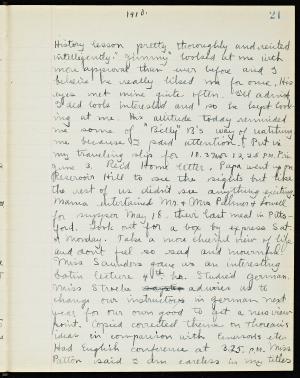 1910.
21
History lesson pretty thoroughly and recited
intelligently. "Jimmy" looked at me with
more approval than ever before and I
believe he really liked me for once. His
eyes met mine quite often. I'll admit
I did look interested and so he kept look-
ing at me. His attitude today reminded
me some of "Billy" B's way of watching
me because I paid attention. Put in
my traveling slip for
June 3. Read Home letter. Papa went up on
Reservoir Hill to see the sights but like
the rest of us didn't see anything exciting.
Mama entertained Mr. & Mrs. Palmer & Lowell
for supper May 18. their last meal in Pitts-
ford. Look out for a box by express Sat.
or Monday. Take a more cheerful view of life
and don't feel so sad and mournful.
Miss Saunders gave us an interesting
Latin lecture 4th hr. Studied German.
Miss Stroebe advises us to
change our instructors in German next
year for our own good to get a new view
point. Copied corrected theme on Thoreau's
ideas in comparison with Emersons etc.
Had English conference at 3.25 P.M. Miss
said I am careless in my titles